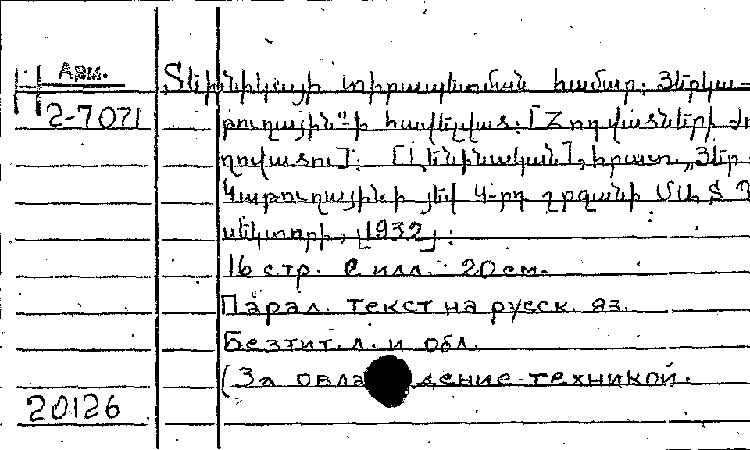 Арм.
Տեխնիկայի տիրապետման համար: Յերկա-
2-7071
թուղային"-ի հավելված: [Հոդվածների ժո
ղովածու]: [Լենինական], հրատ. „Յեր
կաթուղայինի յեվ 4-րդ շրջանի
սեկտորի, [1932]:
16 стр. с илл. 20 см.
Парал. текст на русск. яз.
Без тит. л. и обл.
(За овла дение техникой.
20126